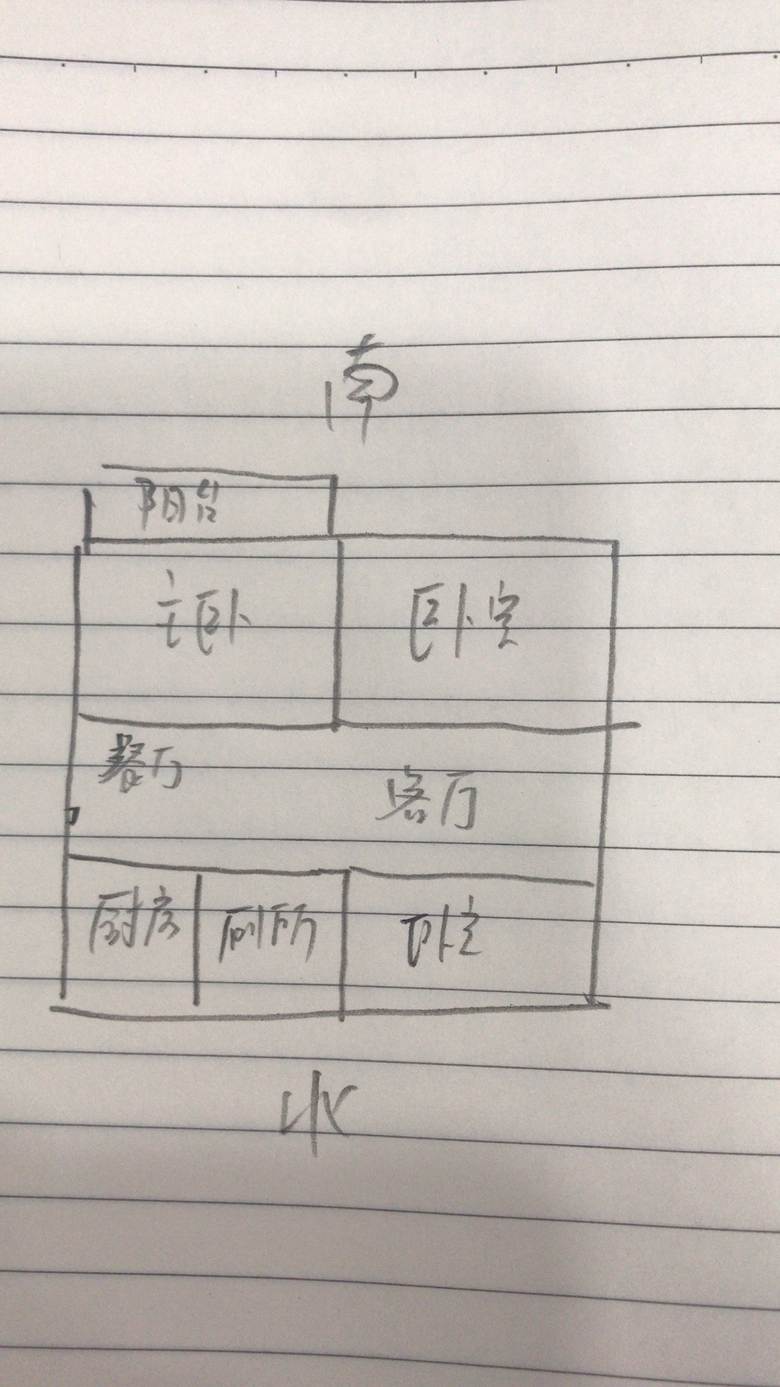 南
阳台
主卧 卧室
餐厅
客厅
厨房 厕所 卧室
北